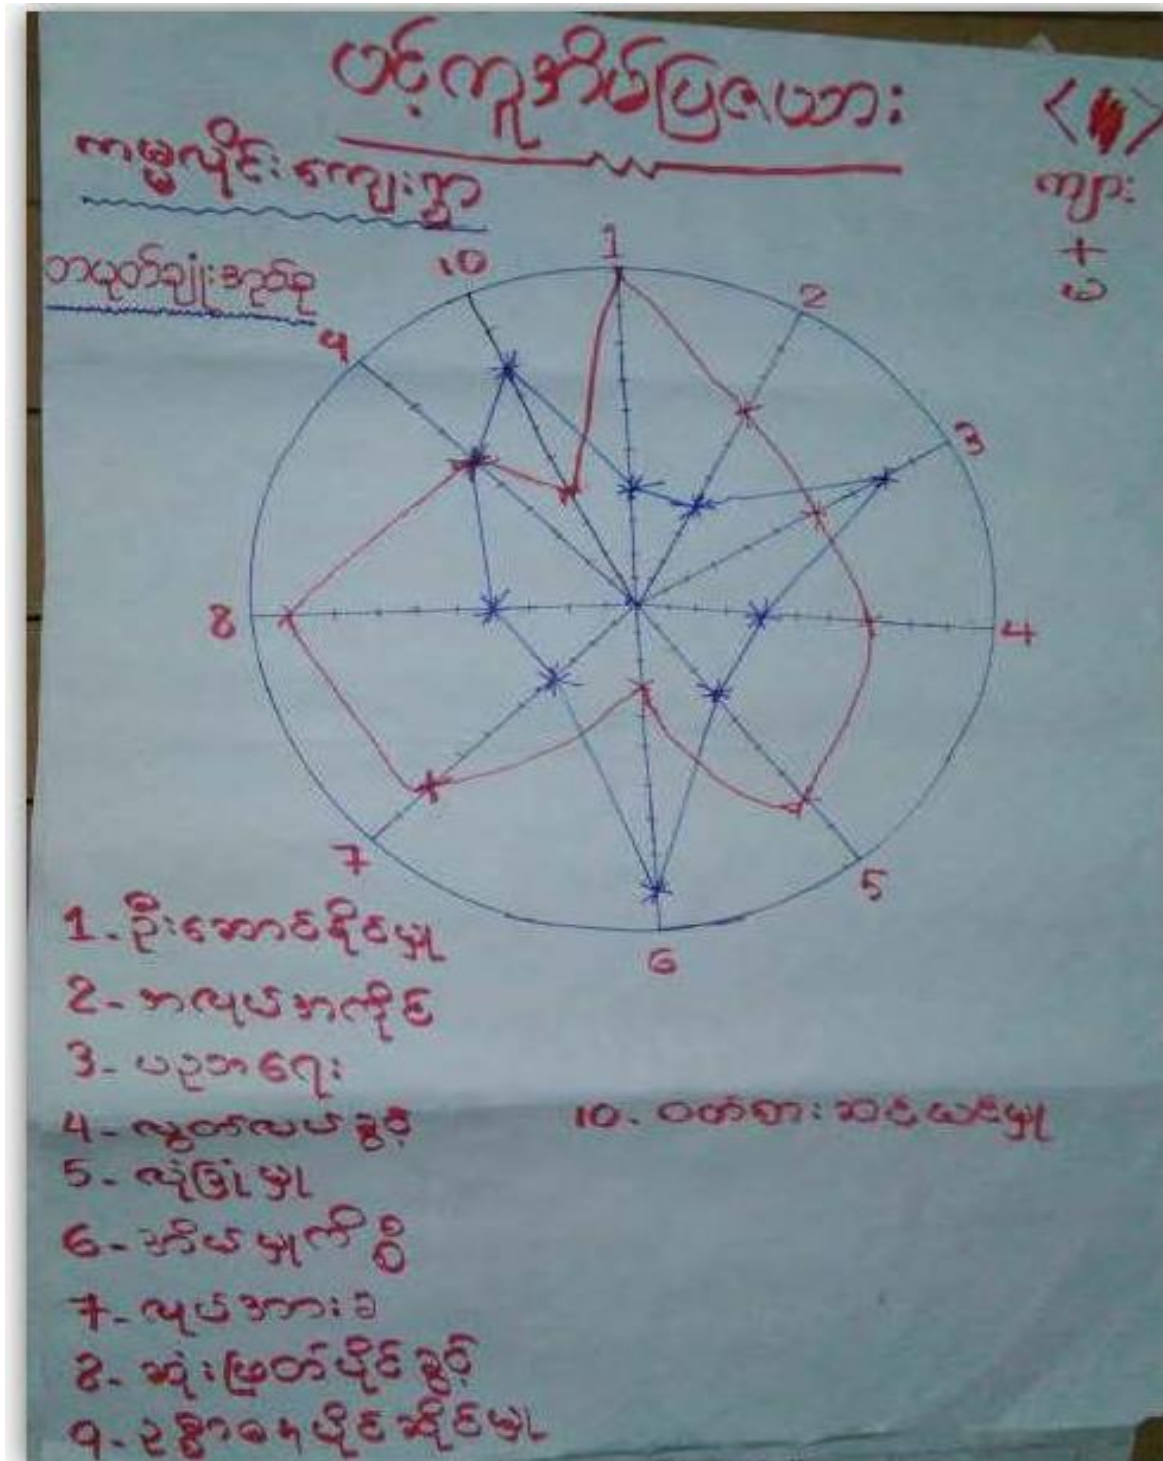 ပင့်ကူအိမ်ပြဇယား
ကမ္မလိုင်းကျေးရွာ
ကျား
+
မ
1
2
3
4
5
6
7
8
9
10
1. ဦးဆောင်နိုင်မှု
2- အလုပ်အကိုင်
3- ပညာရေး
4- လွတ်လပ်ခွင့်
5- လုံခြုံမှု
6- အိမ်မှုကိစ္စ
7- လုပ်အားခ
8- ဆုံးဖြတ်ပိုင်ခွင့်
9- ဥစ္စာဓနပိုင်ဆိုင်မှု
10. ဝတ်စားဆင်ယင်မှု